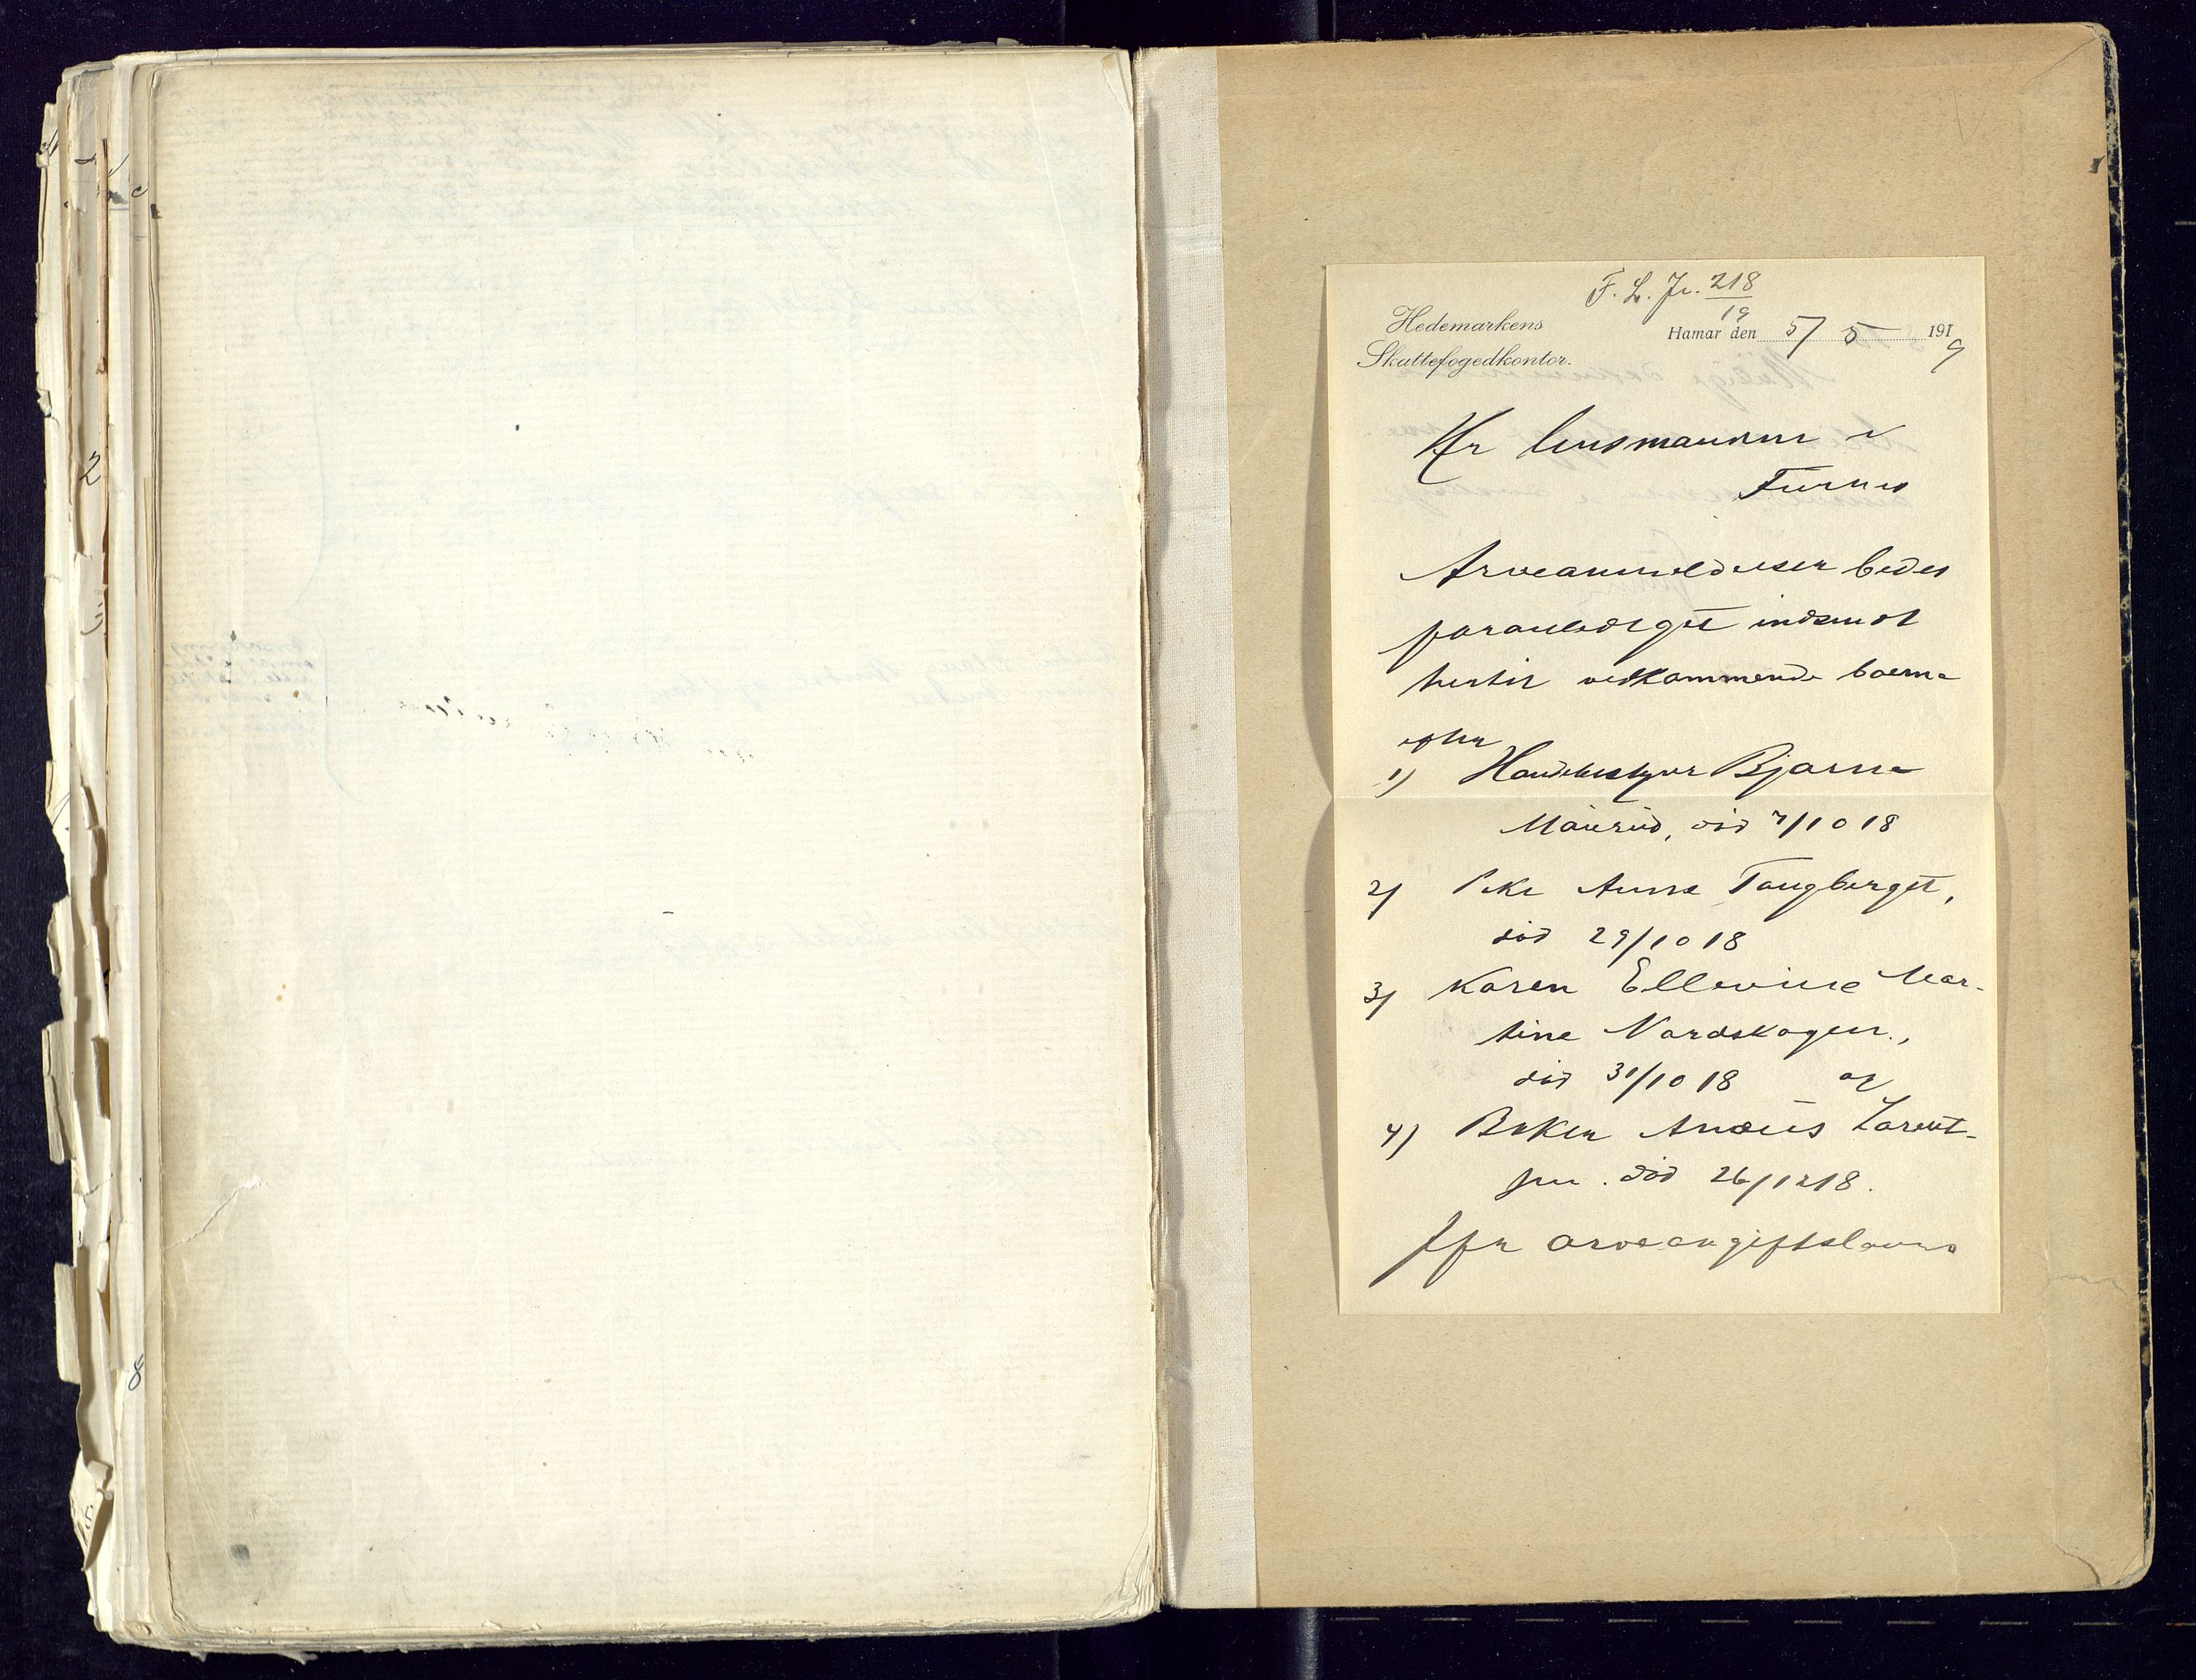 F. L. Jr. 218
19
Hedemarkens
Skattefogedkontor.
Hamar den 5/5 1919
Hr lensmannen i
Furnes
Arveanmeldelsen bedes
foranlediget indsendt
hertil vedkommende boerne
efter
1) Handelsbestyrer Bjarne
Maurud, død 7/10 18
2) Pike Anna Tangberget,
død 29/10 18
3) Karen Ellevine Mar-
tine Nordskogen.,
død 31/10 18 og
4) Anæus Lorent-
sen. død 26/12 18.
Jfr arveavgiftslovens